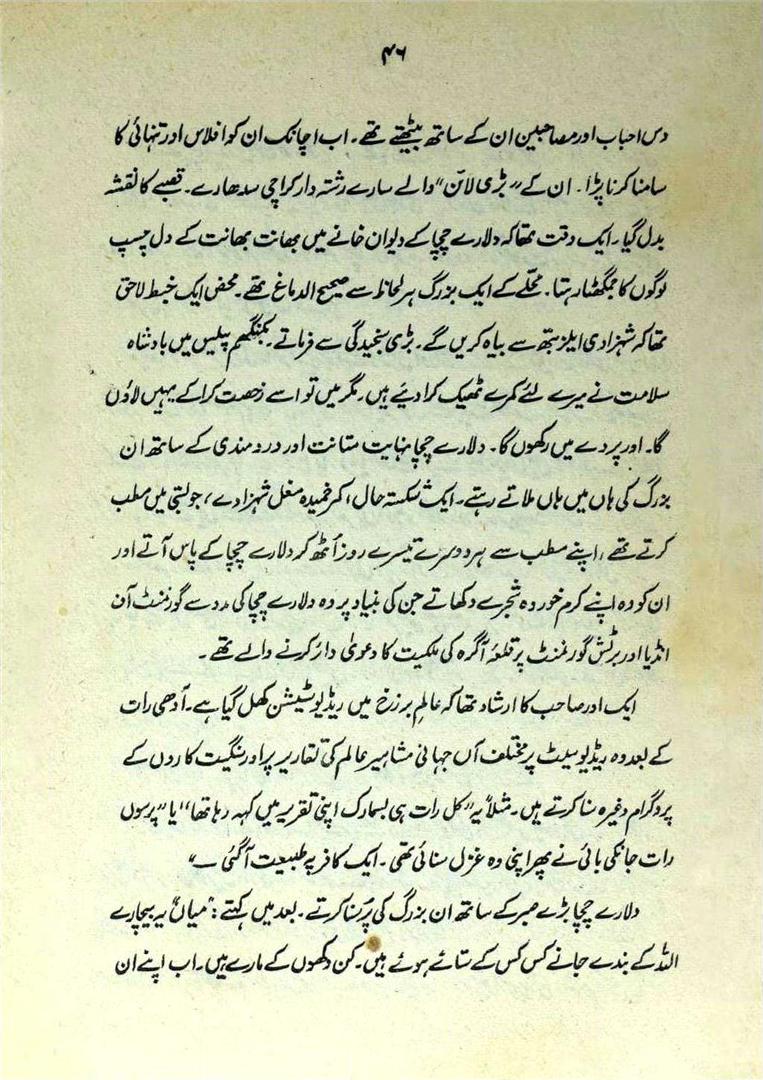 ۴۶
دس احباب اور مصاحبین ان کے ساتھ بیٹھتے تھے۔ اب اچانک ان کو افلاس اور تنہائی کا
سامنا کرنا پڑا۔ ان کے "بڑی لائن" والے سارے رشتہ دار کراچی سدھارے۔ قصبے کا نقشہ
بدل گیا۔ ایک وقت تھا کہ دلارے چچا کے دیوان خانے میں بھانت بھانت کے دل چسپ
لوگوں کا جمگھٹا رہتا۔ محلّے کے ایک بزرگ ہر لحاظ سے صحیح الدماغ تھے۔ محض ایک خبط لاحق
تھا کہ شہزادی ایلزبتھ سے بیاہ کریں گے۔ بڑی سنجیدگی سے فرماتے۔ بکنگھم پیلیس میں بادشاہ
سلامت نے میرے لئے کمرے ٹھیک کرا دیئے ہیں۔ مگر میں تو اسے رخصت کرا کے یہیں لاؤں
گا۔ اور پردے میں رکھوں گا۔ دلارے چچا نہایت متانت اور دردمندی کے ساتھ ان
بزرگ کی ہاں میں ہاں ملاتے رہتے۔ ایک شکستہ حال، کمر خمیدہ مغل شہزادے، جو بستی میں مطب
کرتے تھے، اپنے مطب سے ہر دوسرے تیسرے روز اُٹھ کر دلارے چچا کے پاس آتے اور
ان کو وہ اپنے کرم خوردہ شجرے دکھاتے جن کی بنیاد پر وہ دلارے چچا کی مدد سے گورنمنٹ آف
انڈیا اور برٹش گورنمنٹ پر قلعۂ آگرہ کی ملکیت کا دعویٰ دائر کرنے والے تھے۔
ایک اور صاحب کا ارشاد تھا کہ عالمِ برزخ میں ریڈیو سٹیشن کھل گیا ہے۔ آدھی رات
کے بعد وہ ریڈیو سیٹ پر مختلف آں جہانی مشاہیر عالم کی تقاریر اور سنگیت کاروں کے
پروگرام وغیرہ سنا کرتے ہیں۔ مثلاً یہ "کل رات ہی بسمارک اپنی تقریر میں کہہ رہا تھا" یا "پرسوں
رات جانکی بائی نے پھر اپنی وہ غزل سنائی تھی۔ ایک کافر پہ طبیعت آ گئی ــ"
دلارے چچا بڑے صبر کے ساتھ ان بزرگ کی بَر سنا کرتے۔ بعد میں کہتے: "میاں یہ بیچارے
اللہ کے بندے جانے کس کس کے ستائے ہوئے ہیں۔ کن دکھوں کے مارے ہیں۔ اب اپنے ان